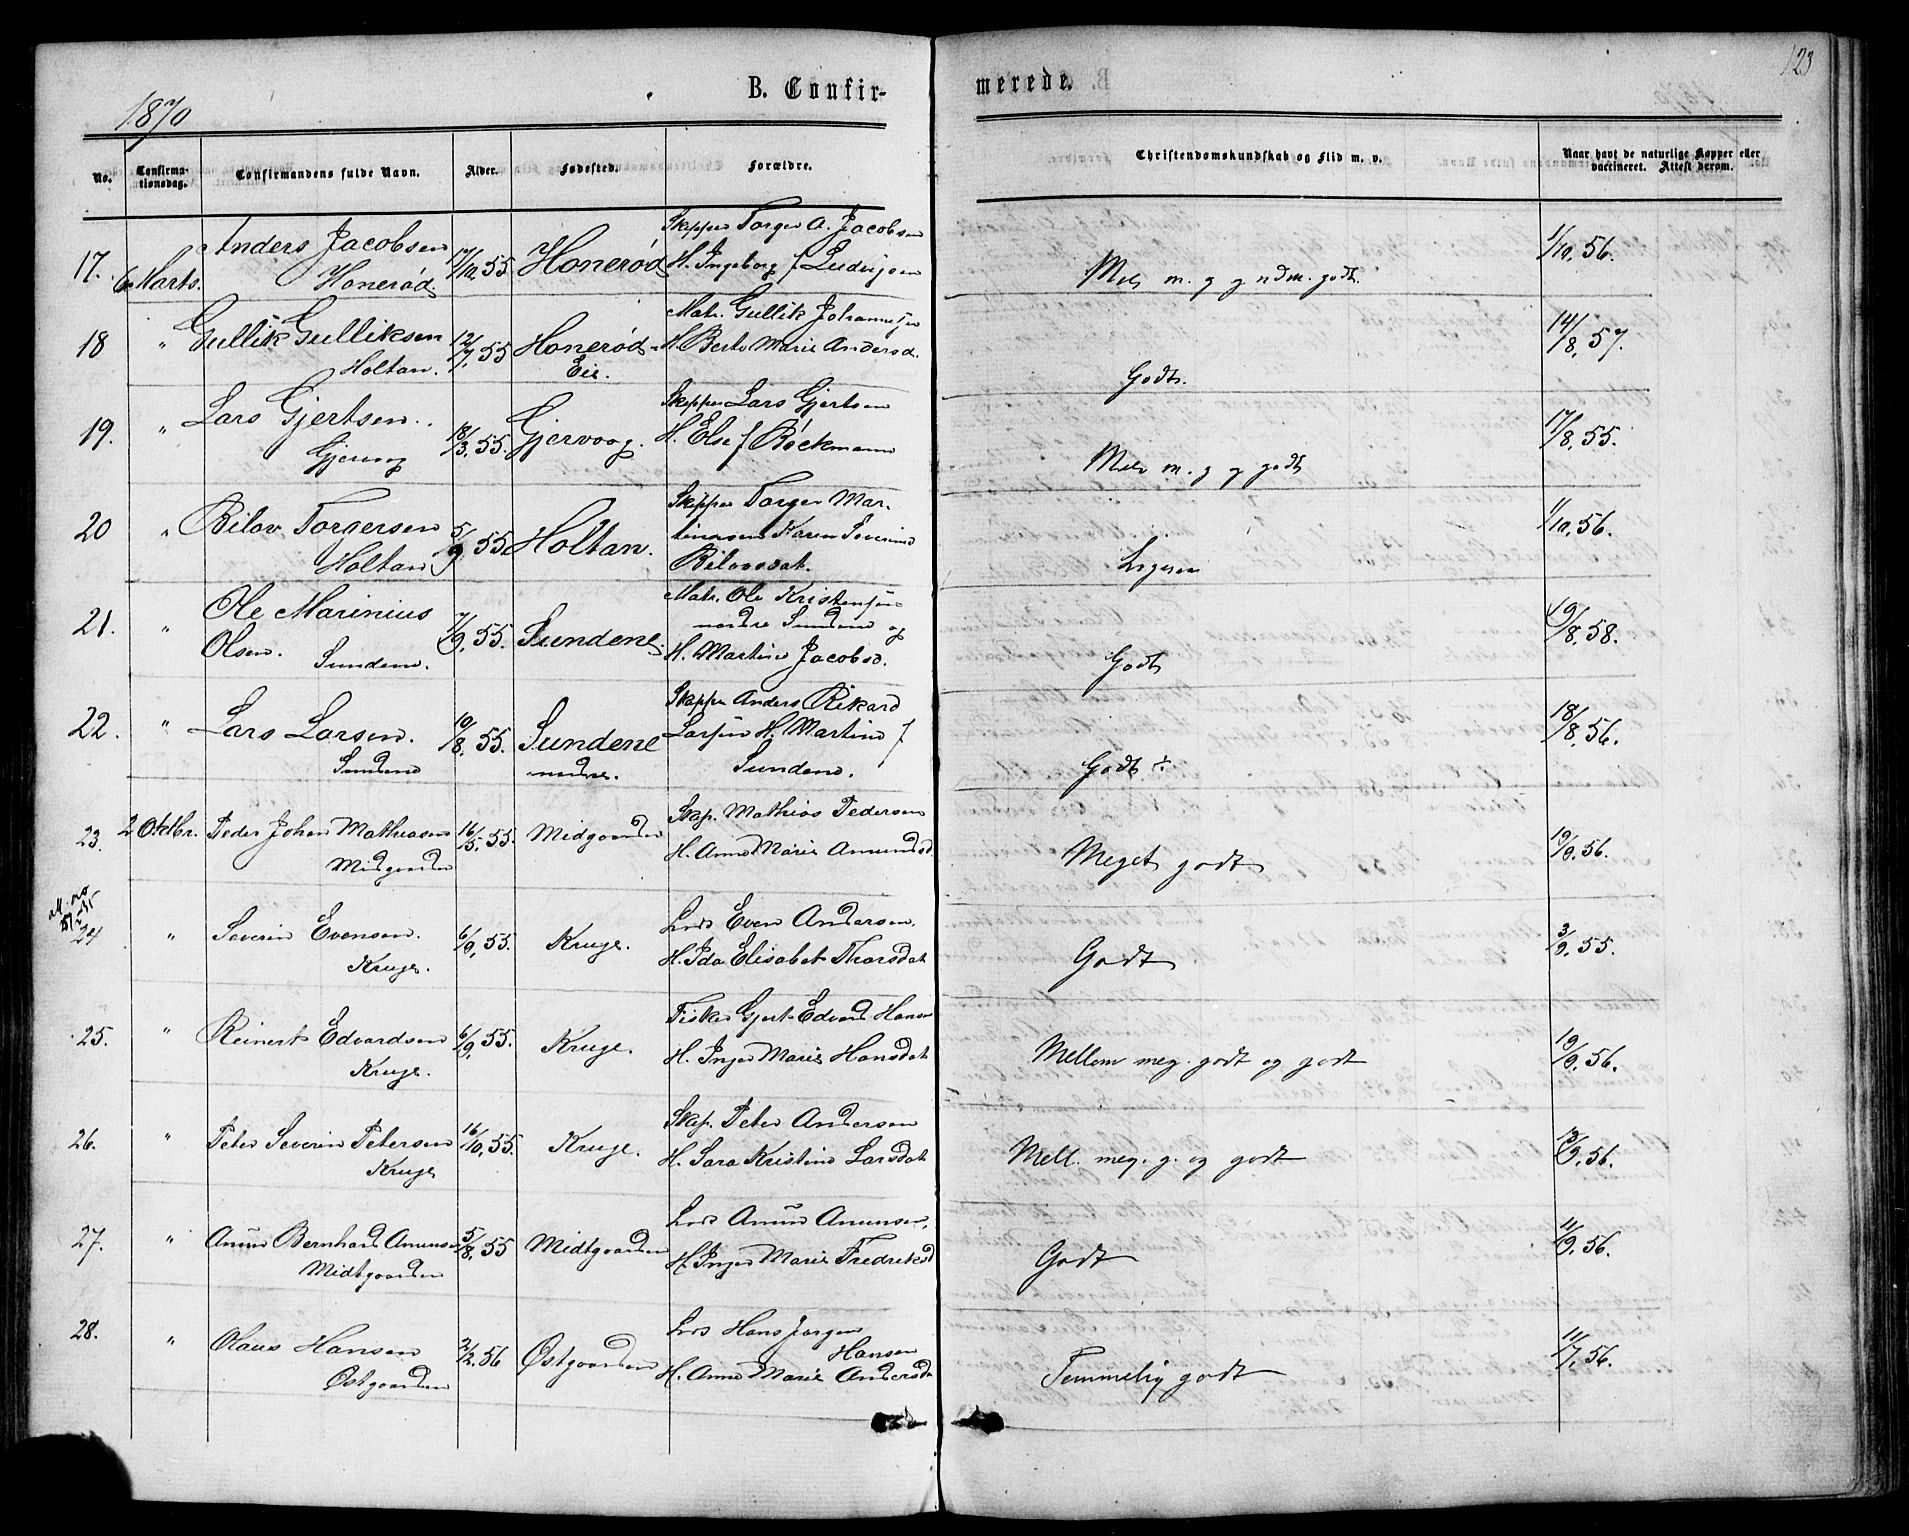 123
1870
B. Confir-
merede.
No.
Confirma-
tionsdag.
Confirmandens fulde Navn.
Alder.
Fødested.
Forældre.
Christendomskundskab og Flid m. v.
Naar havt de naturlige Kopper eller
vaccineret. Attest derom.
17. 6 Marts. Anders Jacobsen
Honerød.
17/10, 55. Honerød
Skipper Torger A. Jacobsen
H. Ingeborg f Ludvigsen
m. g
godt.
1/10, 56.
18 " Gullik Gulliksen
Holtan.
12/7, 55 Honerød-
Eie.
Matr. Gullik Johannesen
H Berte Marie Andersd.
Godt.
14/8, 57.
19. " Lars Gjertsen.
Gjervog
18/3, 55. Gjervoog.
Skipper Lars Gjertsen
H. Else f Bøckmann
m. g g godt
17/8, 55.
20 " Bilov Torgersen
Holtan
5/9, 55 Holtan.
Skipper Torger Mar-
tinussen Karen Severine
Bilovsdat.
Ligesaa
1/10, 56.
21. " Ole Marinius
Olsen. Sundene.
7/9, 55. Sundene.
Matr. Ole Kristensen
nordre Sundene og
H. Martine Jacobsd.
Godt
19/8, 58.
22. " Lars Larsen.
Sundene
10/8, 55. Sundene
nordre.
Skipper Anders Rikard
Larsen H. Martine f
Sundene.
Godt ÷
18/8, 56.
23. 2 Oktbr. Peder Johan Mathiasen
Midgaarden
16/5, 55. Midgaarden
Skip. Mathias Pedersen
H. Anne Marie Amundsd.
Meget godt
19/9, 56.
24 " Severin Evensen.
Kruge.
6/9, 55. Kruge.
Lods Even Andersen.
H. Ida Elisabet Thorsdat
Godt
3/9, 55.
25. " Reinert Edvardsen
Kruge.
6/9, 55. Kruge.
Fisker Gjert Edvard Hansen
H. Inger Marie Hansdat
Mellem meg. godt og godt
19/9, 56.
26. " Peter Severin Petersen
Kruge
16/10, 55. Kruge.
Skip. Peter Andersen
H. Sara Kristine Larsdat
Mell. meg. g. og godt
56.
27. " Amund Bernhard Amunsen
Midtgaarden
5/8, 55 Midtgaarden
Lods Amund Amunsen,
H. Inger Marie Fredriksd
Godt
11/9, 56.
28. " Olaus Hansen
Østgaarden
2/2, 56 Østgaarden
Lods Hans Jørgen
Hansen
H. Anne Marie Andersd
Temmelig godt
11/7, 56.